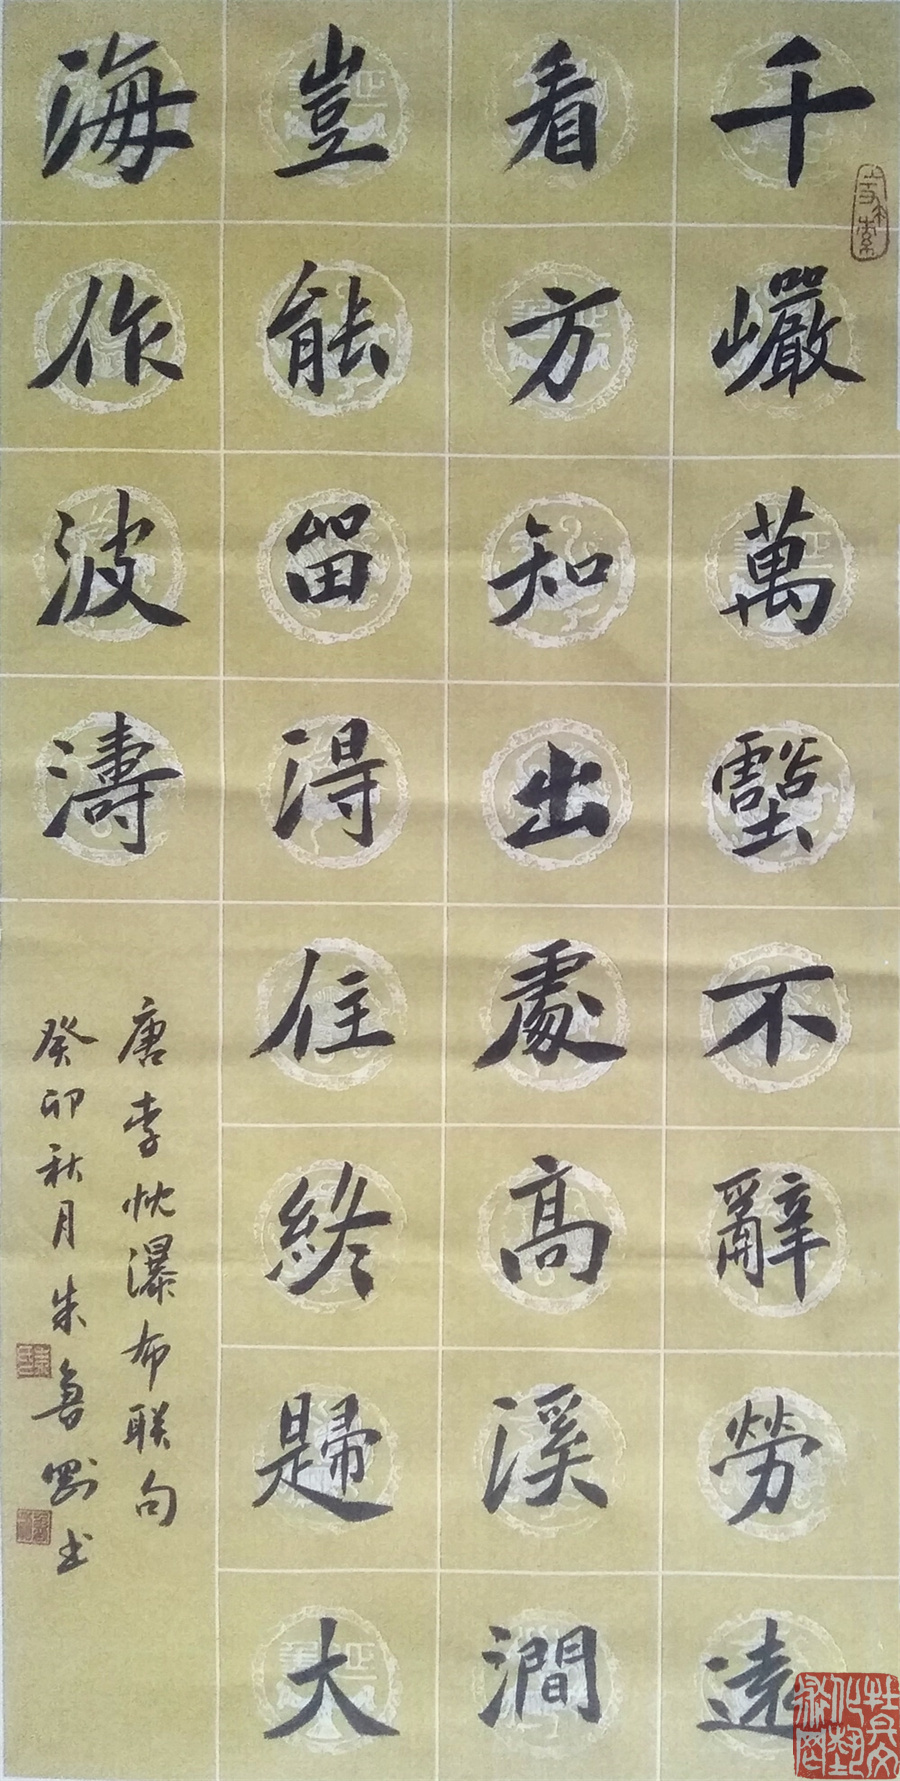 千巖萬壑不辭勞遠
看方知出處高溪澗
豈能留得住終歸大
海作波濤
唐李忱瀑布联句
癸卯秋月朱魯剛书
牡丹文化艺术网